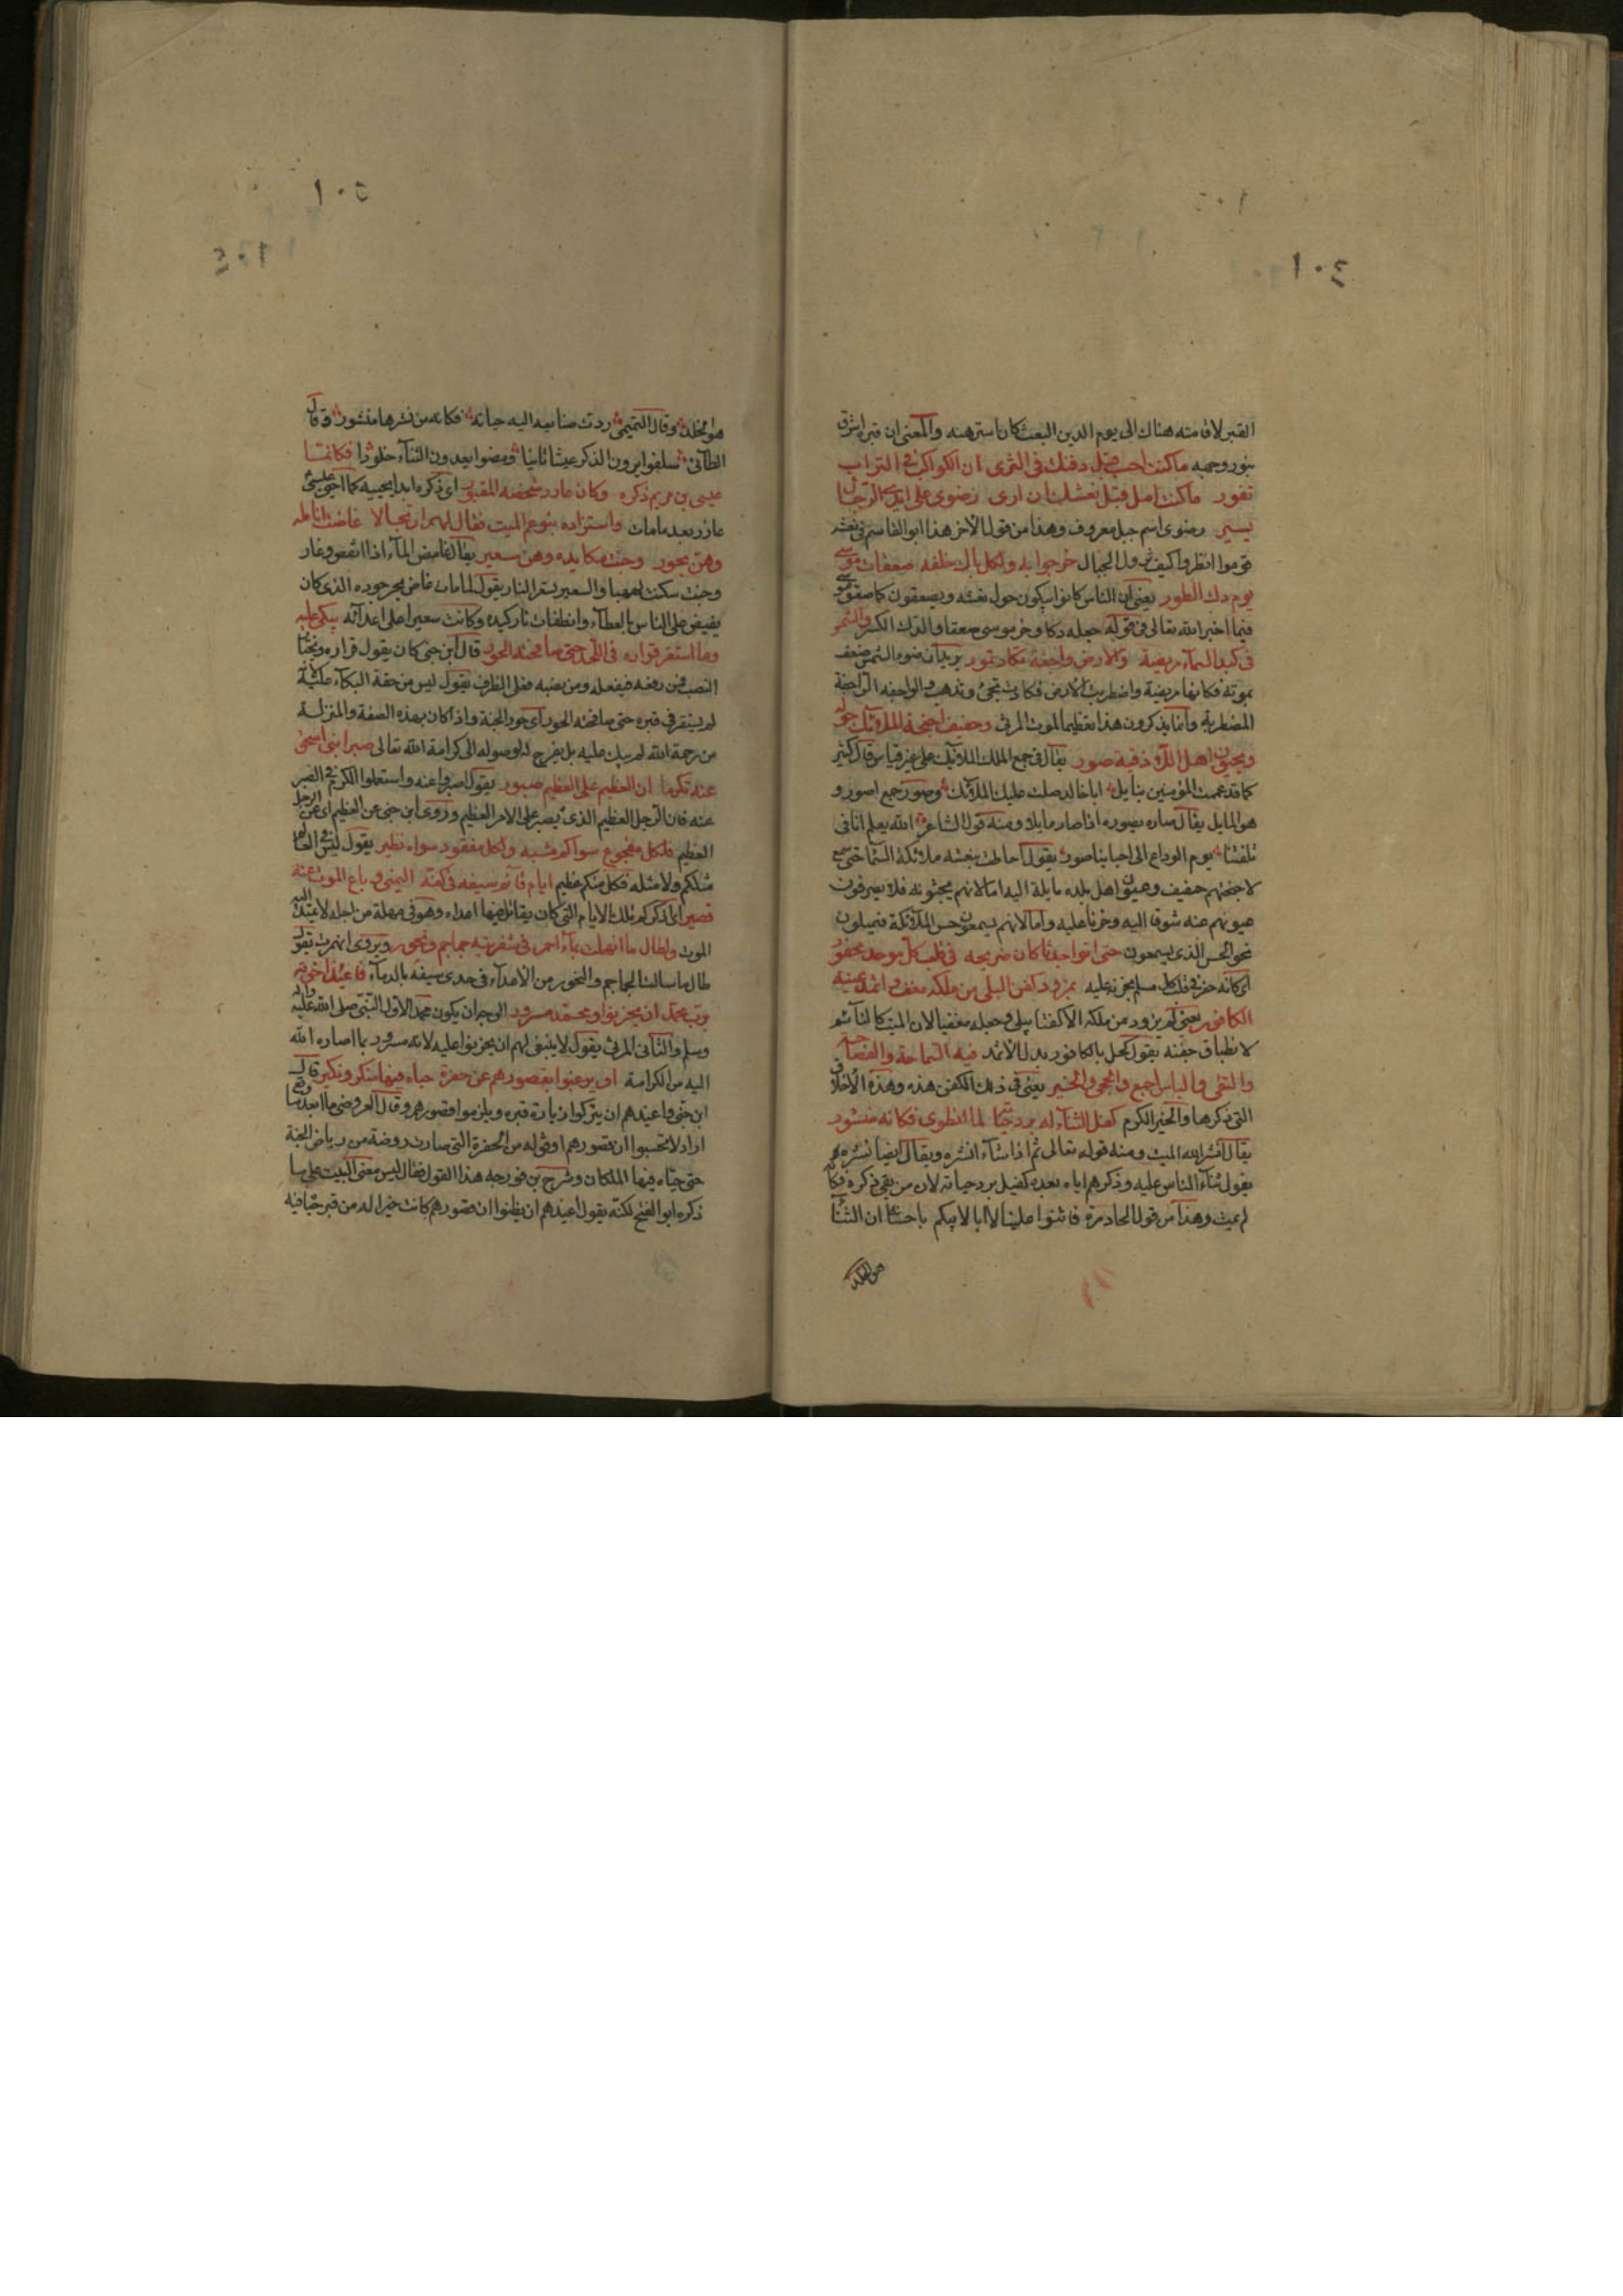 ١٠٤
القبر لاقامته هناك الى يوم الدين البعث كان استرهنه والمعنى ان قبره اشرق
بنور وجهه ما كنت احسب قبل دفنك فى الثرى ان الكواكب فى التراب
تغور ما كنت امل قبل نعشك ان ارى رضوى على ايدى الرجال
يسير رضوى اسم جبل معروف وهذا من قول الاخر هذا ابو القاسم فى نعشه
قوموا انظروا كيف تزول الجبال خرجوا به ولكل باك خلفه صعقات موسى
يوم دك الطور يعنى ان الناس كانوا يبكون حول نعشه ويصعقون كما صعق موسى
فيما اخبر الله تعالى فى قوله جعله دكا وخر موسى صعقا والدك الكسر والشمس
فى كبد السماء مريضة والارض واجفة تكاد تمور يريد ان ضوء الشمس ضعف
بموته فكانها مريضة واضطربت الارض فكادت تجئ وتذهب والواجفة الراجفة
المضطربة وانما يذكرون هذا تعظيما لموت المرثى وحفيف اجنحة الملائك حوله
وعيون اهل اللاذقية صور يقال فى جمع الملك الملائك على غير قياس قال كثير
كما قد عممت المؤمنين بنايل ابا خالد صلت عليك الملائك وصور جمع اصور و
هو المايل يقال صاره يصوره اذا اماله ومنه قول الشاعر الله يعلم انا فى
تلفتنا يوم الوداع الى احبابنا صور يقول احاطت بنعشه ملائكة السما حتى سمع
لاجنحتهم حفيف وعيون اهل بلده مايلة اليه اما لانهم يحبونه فلا يصرفون
عيونهم عنه شوقا اليه وحزنا عليه واما لانهم يسمعون حس الملائكة فيميلون
نحو الحس الذى يسمعون حتى اتوا جدثا كان ضريحه فى قلب كل موحد محفور
اى كانه حفر فى قلب كل مسلم لحزنه عليه بمزود كفن البلى من ملكه مغف واثمد عينه
الكافور يعنى لم يزود من ملكه الا كفنا يبلى وجعله مغفيا لان الميت كالنائم
لانطباق جفنه يقول كحل بالكافور بدل الاثمد فيه السماحة والفصاحة
والتقى والباس اجمع والحجى والخير يعنى فى ذلك الكفن هذه وهذه الاخلاق
التى ذكرها والخير الكرم كفل الثناء له برد حياته لما انطوى فكانه منشور
يقال انشر الله الميت ومنه قوله تعالى ثم اذا شاء انشره ويقال ايضا نشره
يقول ثناء الناس عليه وذكرهم اياه بعده كفيل برد حياته لان من بقى ذكره فكانه
لم يمت وهذا من قول الحادرة فاثنوا علينا لا ابا لابيكم باحساننا ان الثنا
هو الخلد
١٠٥
هو مخلد وقال التميمى ردت صنائعه اليه حياته فكانه من نشرها منشور وقال
الطائى سلفوا يرون الذكر عيشا ثانيا ومضوا يعدون الثناء خلودا فكانما
عيسى بن مريم ذكره وكان عازر شخصه المقبور اى ذكره ابدا يحييه كما احيى عيسى
عازر بعد ما مات واستزاده بنو عم الميت فقال لهم ارتجالا غاضت انامله
وهن بحور وخبت مكايده وهن سعير يقال غاض الماء اذا انقص وغار
وخبت سكنت لهبها والسعير تسعر النار يقول لما مات غاض بحر جوده الذى كان
يفيض على الناس بالعطاء وانطفات نار كيده وكانت سعيرا على اعدائه يبكى عليه
وما استقر قراره فى اللحد حتى صافحته الحور قال ابن جنى كان يقول قراره ويختار
النصب فمن رفعه فبفعله ومن نصبه فعلى الظرف يقول ليس من حقه البكاء عليه لانه
لم يستقر فى قبره حتى صافحته الحور اى حور الجنة واذا كان بهذه الصفة والمنزلة
من رحمة الله لم يبك عليه بل يفرح له لوصوله الى كرامة الله تعالى صبرا بنى اسحق
عنه تكرما ان العظيم على العظيم صبور يقول اصبروا عنه واستعملوا الكرم فى الصبر
عنه فان الرجل العظيم الذى يصبر على الامر العظيم وروى ابن جنى عن العظيم اى عن الرجل
العظيم فلكل مفجوع سواكم مشبه ولكل مفقود سواه نظير يقول ليس فى العالم
مثلكم ولا مثله فكل منكم عظيم ايام قائم سيفه فى كفه اليمنى وباع الموت عنه
قصير اى اذكر تلك الايام التى كان يقاتل فيها اعداءه وهو فى مهلة من اجله لا يمتد اليه
الموت ولطال ما انهملت بماء احمر فى شفرتيه جماجم ونحور ويروى انهمرت يقول
طال ما سالت الجماجم والنحور من الاعداء فى حدى سيفه بالدماء فاعيذ اخوته
برب محمد ان يحزنوا ومحمد مسرور الوجه ان يكون محمد الاول النبى صلى الله عليه واله
وسلم والثانى المرثى يقول لا ينبغى لهم ان يحزنوا عليه لانه مسرور بما اصاره الله
اليه من الكرامة او يرغبوا بقصورهم عن حفرة حياه فيها منكر ونكير قال
ابن جنى واعيذهم ان يتركوا زيارة قبره ويلزموا قصورهم وقال العروضى ما ابعد ما وقع
اراد لا تحسبوا ان قصورهم اوفى له من الحفرة التى صارت روضة من رياض الجنة
حتى حياه فيها الملكان وشرح بن فورجه هذا القول فقال ليس معنى البيت على ما
ذكره ابو الفتح لكنه يقول اعيذهم ان يظنوا ان قصورهم كانت خيرا له من قبر حياه فيه